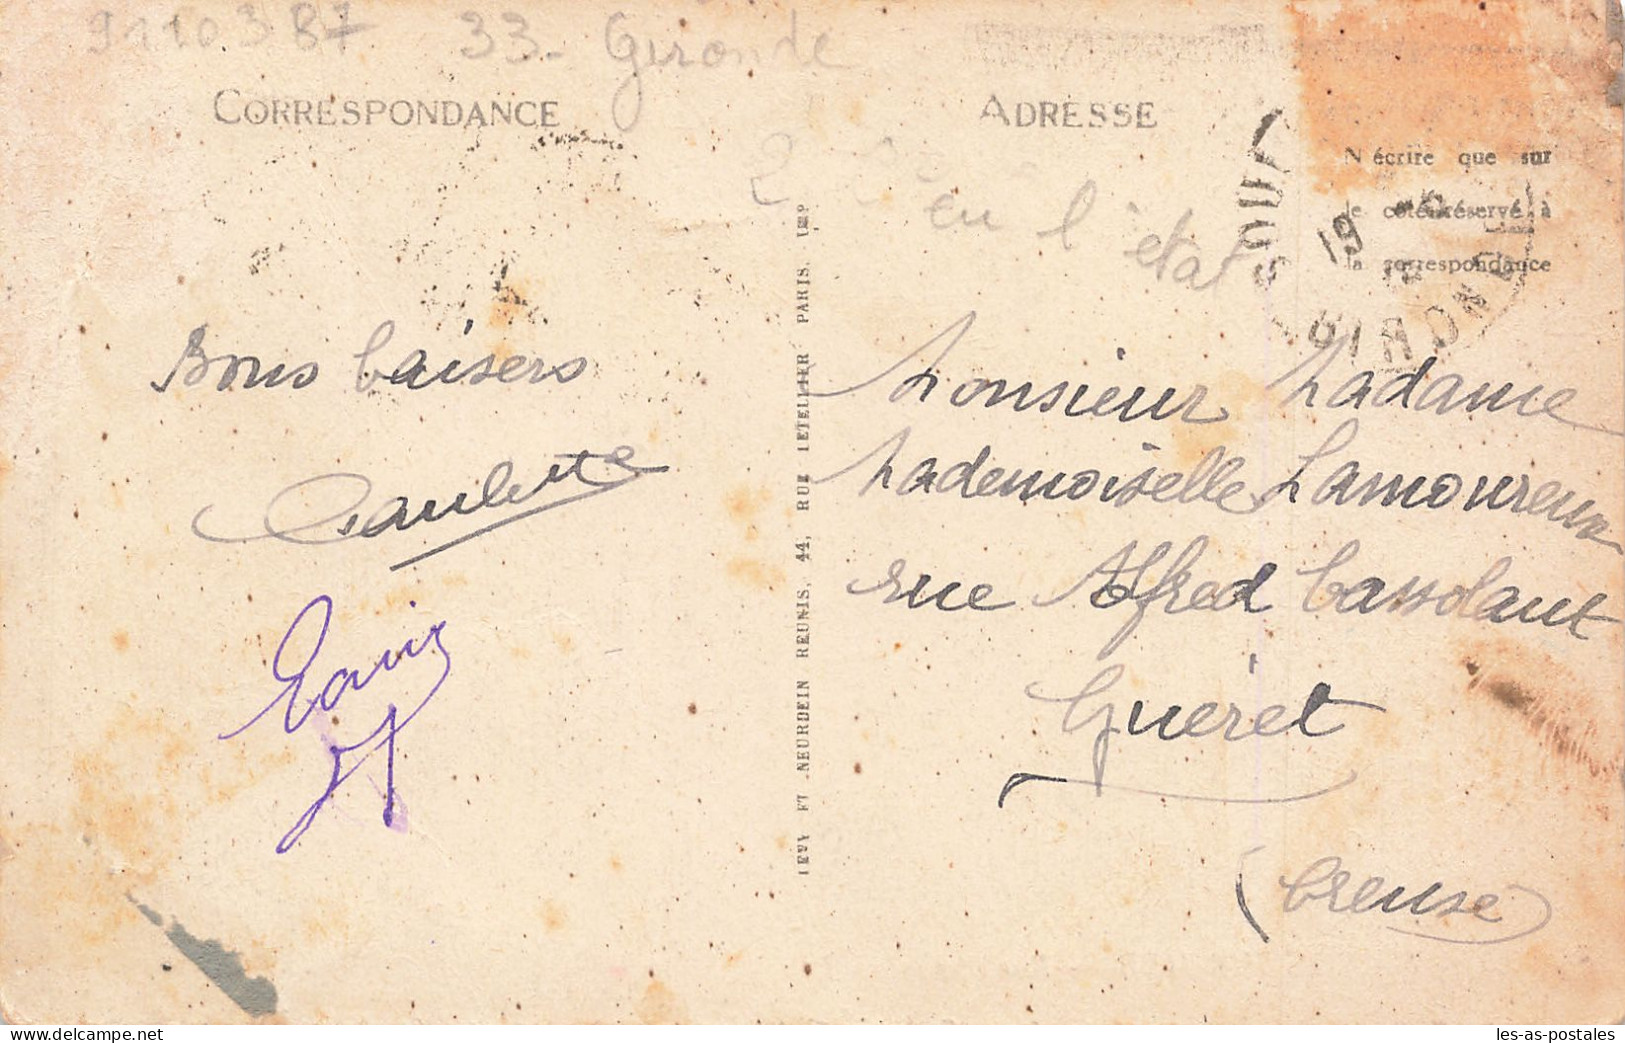 9110387 33- Gironde
CORRESPONDANCE
ADRESSE
N'écrire que sur
le côté réservé à
la correspondance
en l'état
19
GIRONDE
Bons baisers
Paulette
Monsieur Madame
Mademoiselle Lamoureux
rue Alfred Cassolant
Guéret
(Creuse)
LEVY ET NEURDEIN REUNIS, 44, RUE LETELLIER PARIS. IMP
Delcampe.net
les-as-postales